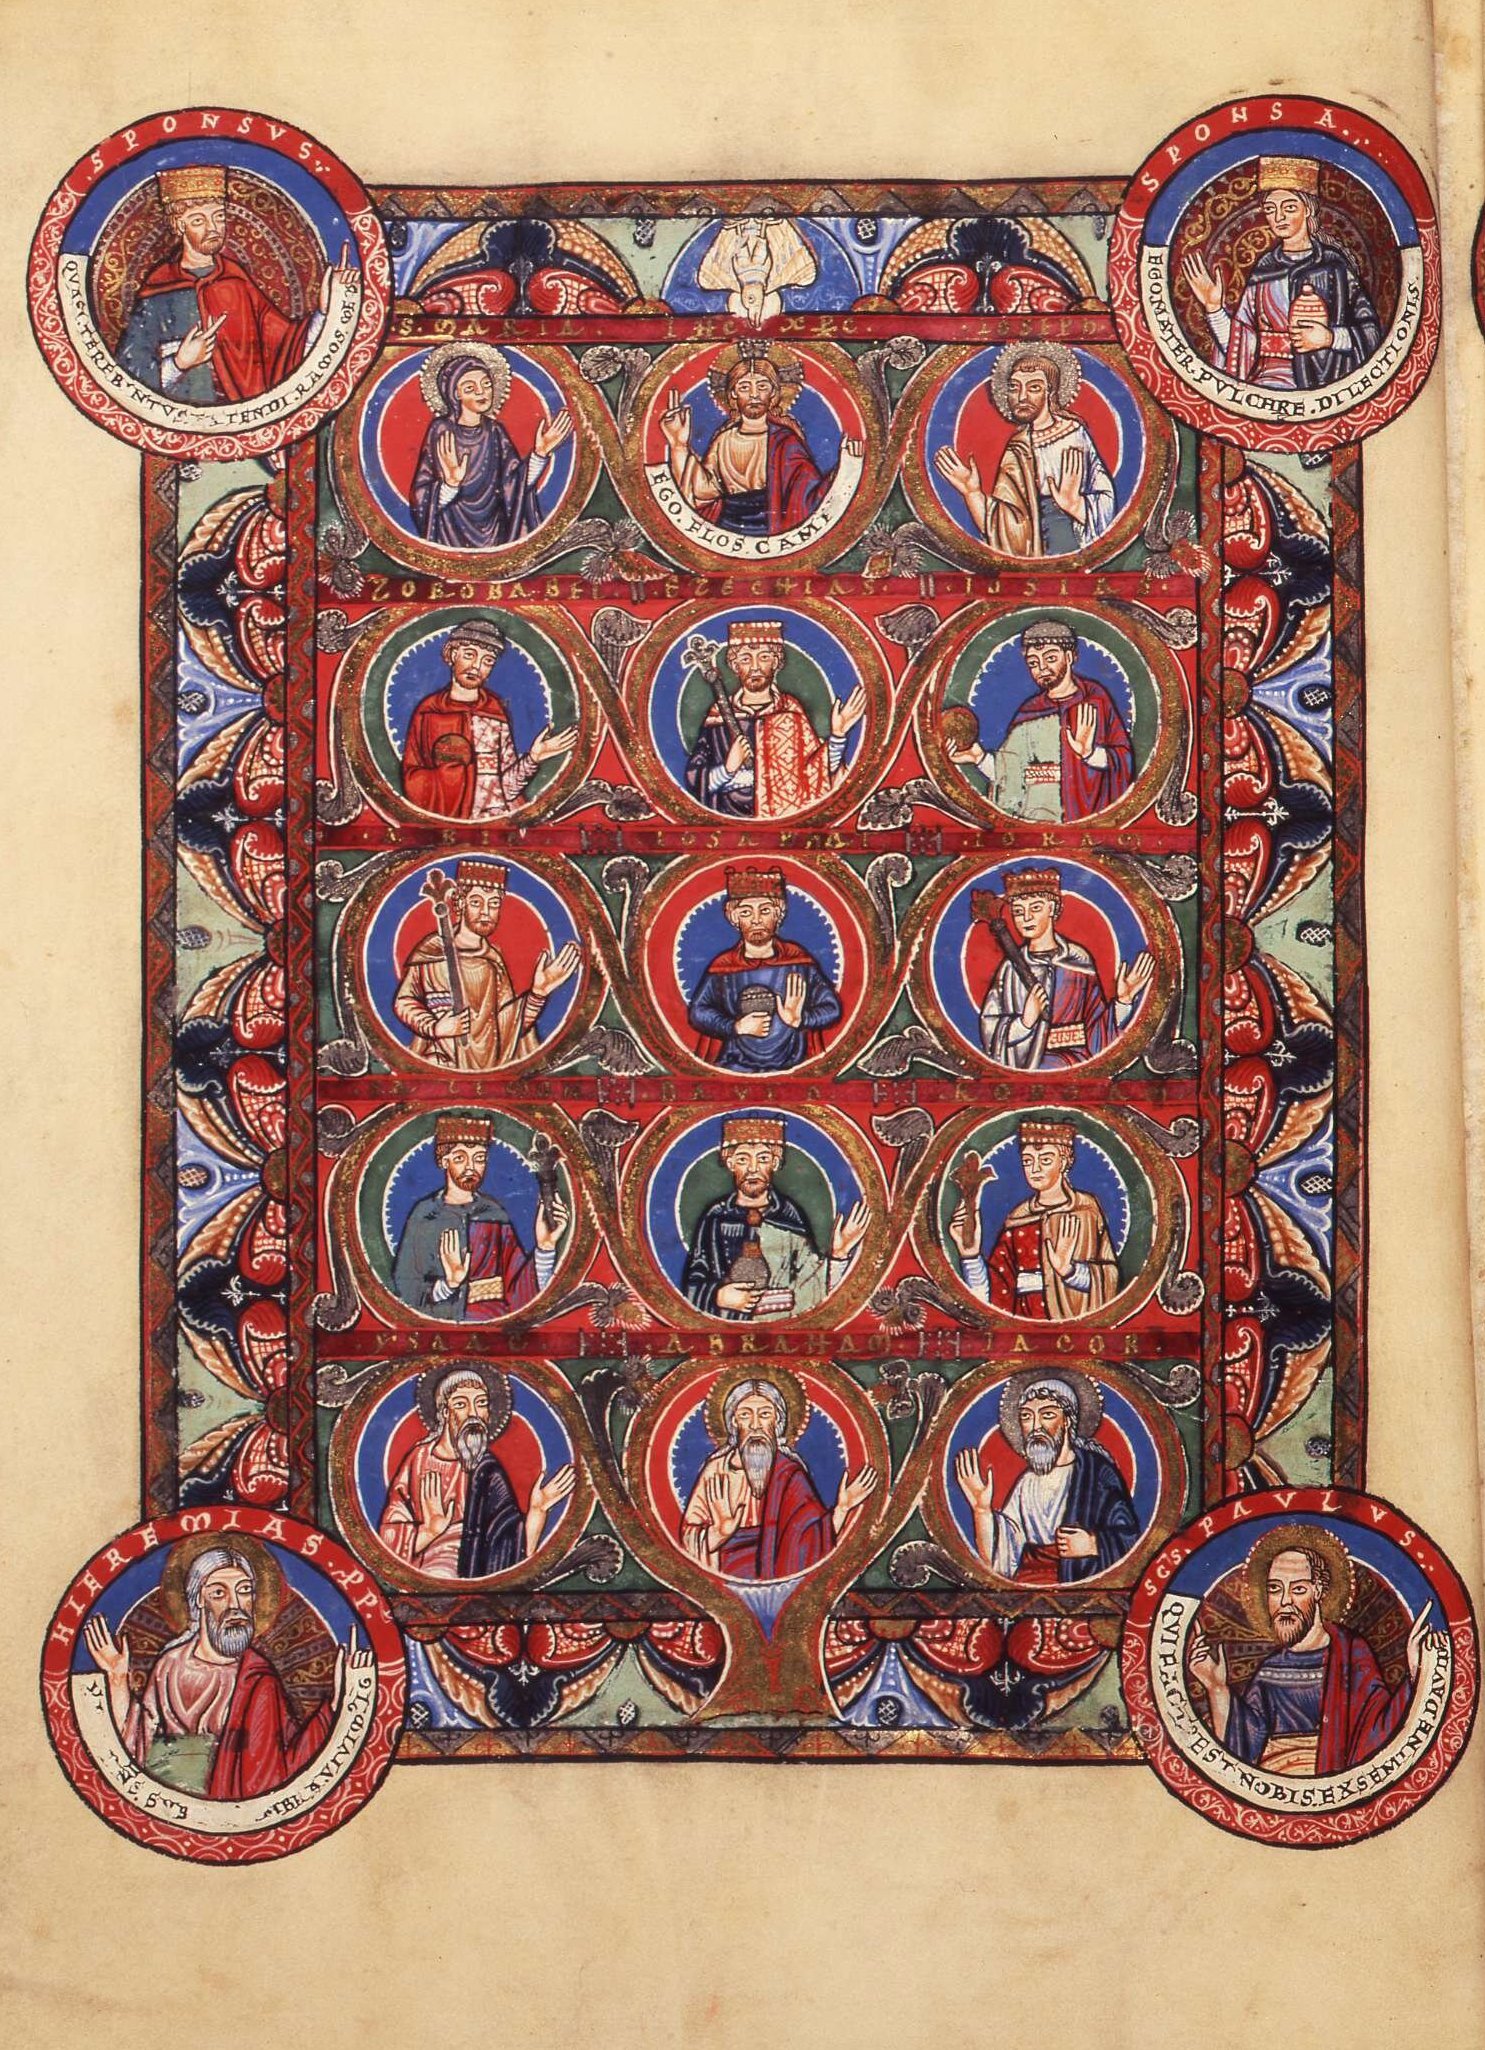 SPONSVS
QVASI.TEREBINTVS.EXTENDI.RAMOS.MEOS
SPONSA
EGO MATER.PVLCHRE.DILECTIONIS
S. MARIA. IHC XPC. IOSEPH
EGO.FLOS.CAMPI
ZOROBABEL. EZECHIAS. IOSIAS.
IOSAPHAT IORAM.
DAVID
YSAAC. ABRAHAM. IACOB.
HIEREMIAS.PP.
SCS. PAVLVS.
EST.NOBIS.EX SEMINE DAVID